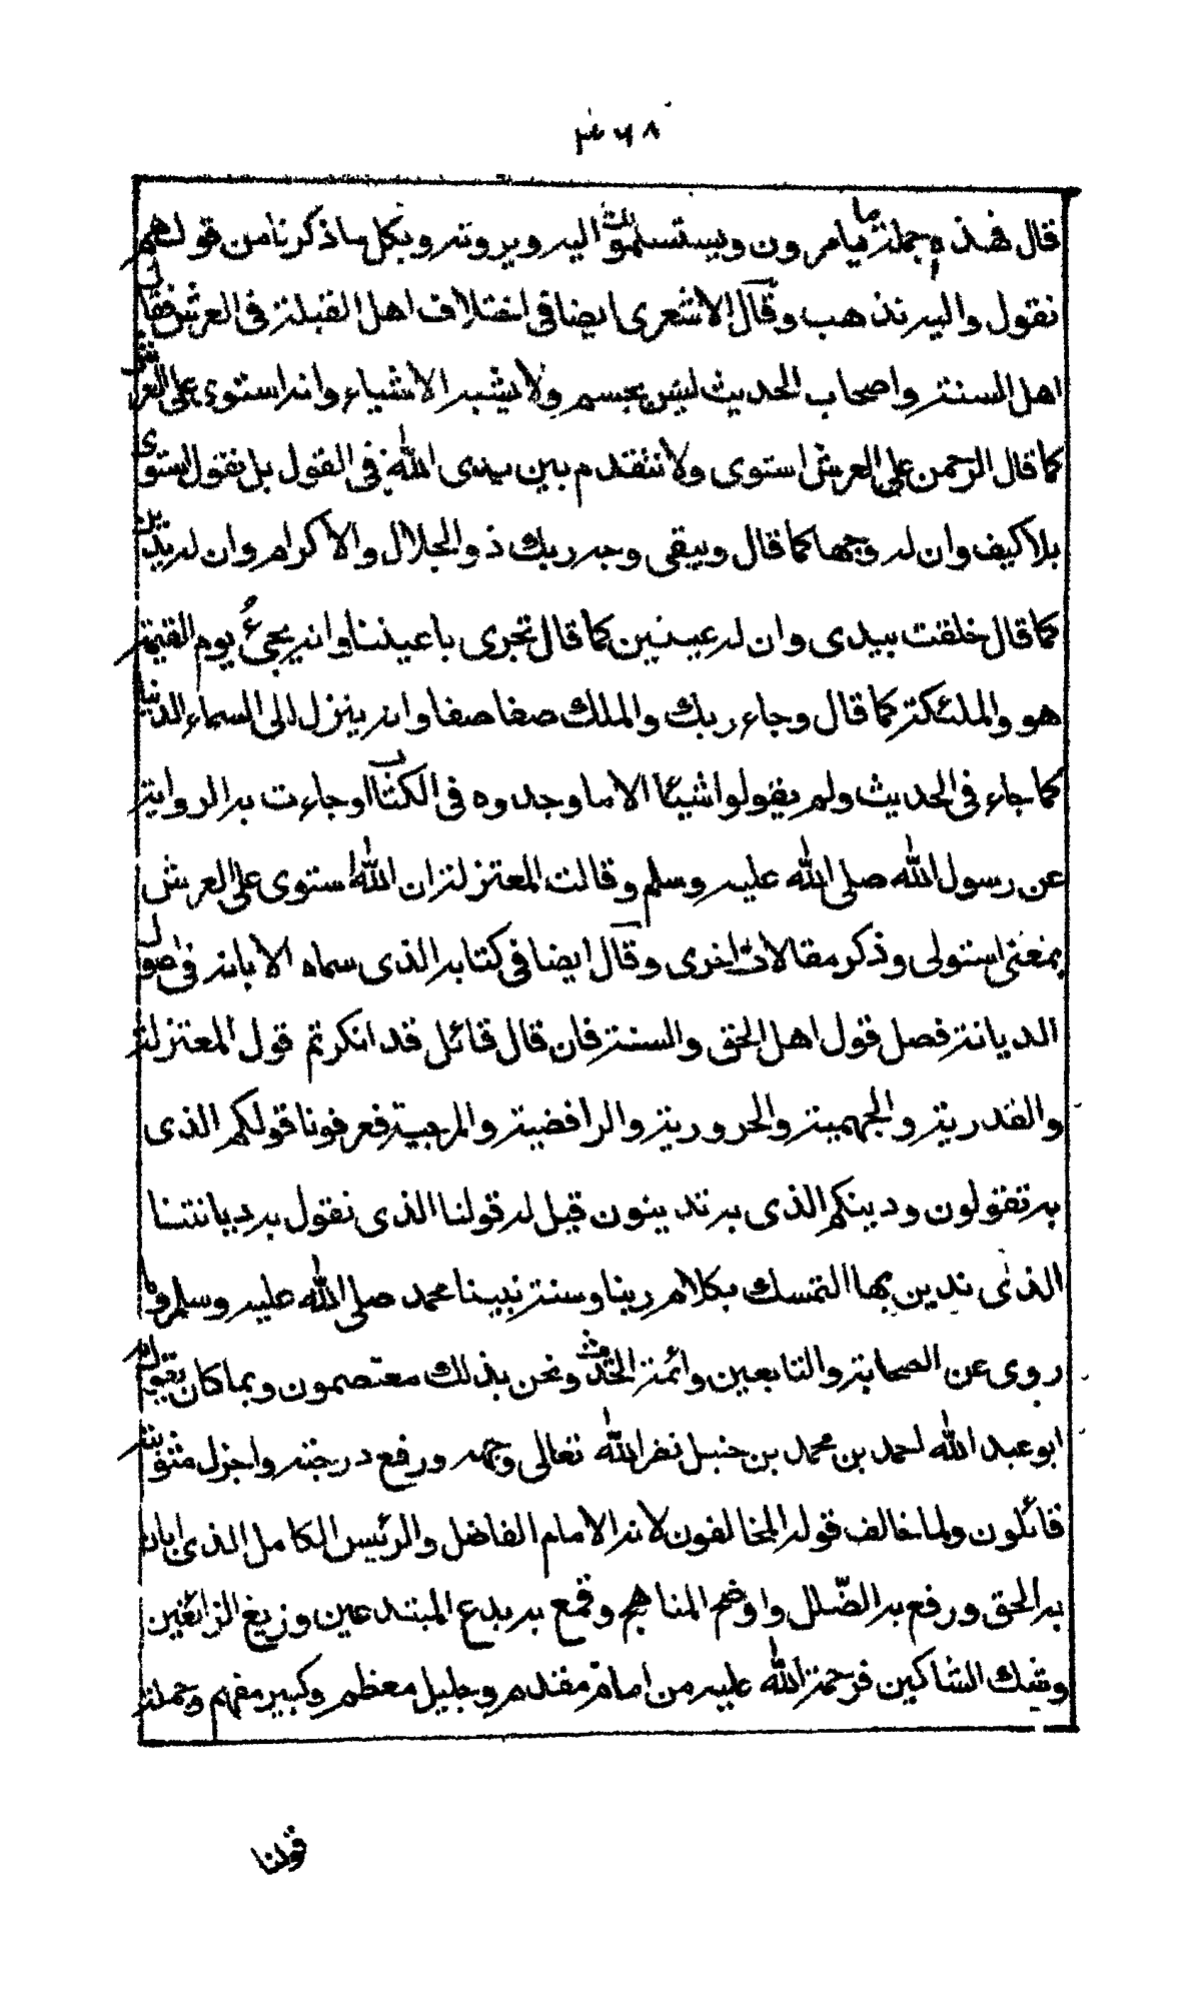 ۴۶۸
قال فهذه جملة ما يامرون ويستسلمون اليه ويرونه وبكل ما ذكرنا من قولهم
نقول واليه نذهب وقال الاشعرى ايضا فى اختلاف اهل القبلة فى العرش فقال
اهل السنة واصحاب الحديث ليس بجسم ولا يشبه الاشياء وانه استوى على العرش
كما قال الرحمن على العرش استوى ولا نتقدم بين يدى الله فى القول بل نقول استوى
بلا كيف وان له وجها كما قال ويبقى وجه ربك ذو الجلال والاكرام وان له يدين
كما قال خلقت بيدى وان له عينين كما قال تجرى باعيننا وانه يجىء يوم القيمة
هو والملئكة كما قال وجاء ربك والملك صفا صفا وانه ينزل الى السماء الدنيا
كما جاء فى الحديث ولم يقولوا شيئا الا ما وجدوه فى الكتاب او جاءت به الرواية
عن رسول الله صلى الله عليه وسلم وقالت المعتزلة ان الله استوى على العرش
بمعنى استولى وذكر مقالات اخرى وقال ايضا فى كتابه الذى سماه الابانة فى اصول
الديانة فصل قول اهل الحق والسنة فان قال قائل قد انكرتم قول المعتزلة
والقدرية والجهمية والحرورية والرافضية والمرجية فعرفونا قولكم الذى
به تقولون ودينكم الذى به تدينون قيل له قولنا الذى نقول به وديانتنا
الذى ندين بها التمسك بكلام ربنا وسنة نبينا محمد صلى الله عليه وسلم وما
روى عن الصحابة والتابعين وائمة الحديث ونحن بذلك معتصمون وبما كان يقول به
ابو عبد الله احمد بن محمد بن حنبل نضر الله تعالى وجهه ورفع درجته واجزل مثوبته
قائلون ولما خالف قوله المخالفون لانه الامام الفاضل والرئيس الكامل الذى ابان
به الحق ورفع به الضّلل واوضح المناهج وقمع به بدع المبتدعين وزيغ الزائغين
وشك الشاكين فرحمة الله عليه من امام مقدم وجليل معظم وكبير مفهم وجملة
قولنا